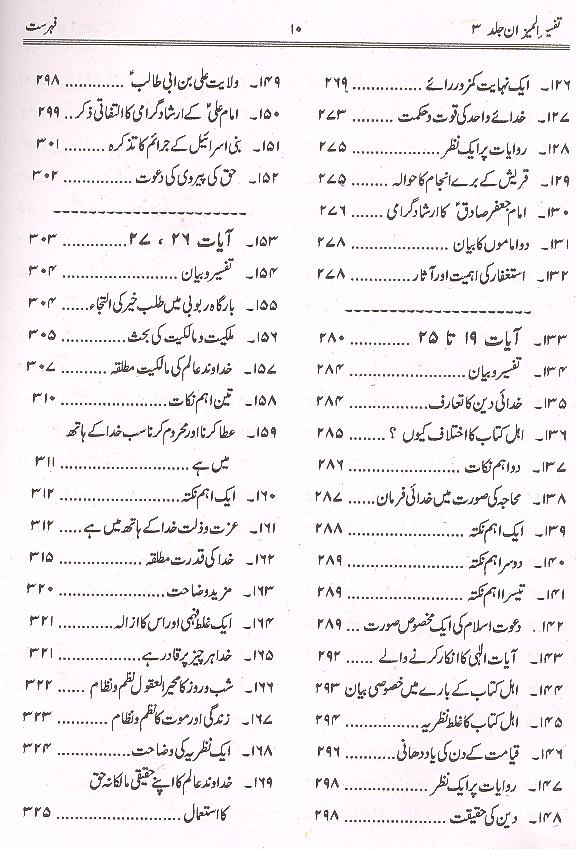 تفسیر المیزان جلد ۳ ۱۰ فہرست
۱۲۶۔ ایک نہایت کمزور رائے .............. ۲۶۹
۱۲۷۔ خدائے واحد کی قوت و حکمت ........ ۲۷۳
۱۲۸۔ روایات پر ایک نظر .................. ۲۷۵
۱۲۹۔ قریش کے برے انجام کا حوالہ ........ ۲۷۵
۱۳۰۔ امام جعفر صادقؑ کا ارشاد گرامی ...... ۲۷۶
۱۳۱۔ دو اماموں کا بیان .................... ۲۷۸
۱۳۲۔ استغفار کی اہمیت اور آثار ............ ۲۷۸
۱۳۳۔ آیات ۱۹ تا ۲۵ ............ ۲۸۰
۱۳۴۔ تفسیر و بیان ........................ ۲۸۴
۱۳۵۔ خدائی دین کا تعارف ................ ۲۸۴
۱۳۶۔ اہل کتاب کا اختلاف کیوں ؟ ........ ۲۸۵
۱۳۷۔ دو اہم نکات ........................ ۲۸۶
۱۳۸۔ محاجہ کی صورت میں خدائی فرمان ...... ۲۸۷
۱۳۹۔ ایک اہم نکتہ ........................ ۲۸۸
۱۴۰۔ دوسرا اہم نکتہ ...................... ۲۸۹
۱۴۱۔ تیسرا اہم نکتہ ...................... ۲۸۹
۱۴۲۔ دعوت اسلام کی ایک مخصوص صورت ... ۲۸۹
۱۴۳۔ آیات الٰہی کا انکار کرنے والے ...... ۲۹۲
۱۴۴۔ اہل کتاب کے بارے میں خصوصی بیان ۲۹۳
۱۴۵۔ اہل کتاب کا غلط نظریہ .............. ۲۹۴
۱۴۶۔ قیامت کے دن کی یاد دھانی .......... ۲۹۶
۱۴۷۔ روایات پر ایک نظر .................. ۲۹۸
۱۴۸۔ دین کی حقیقت ...................... ۲۹۸
۱۴۹۔ ولایت علی بن ابی طالبؑ ............ ۲۹۸
۱۵۰۔ امام علیؑ کے ارشاد گرامی کا التفاتی ذکر .. ۲۹۹
۱۵۱۔ بنی اسرائیل کے جرائم کا تذکرہ ........ ۳۰۱
۱۵۲۔ حق کی پیروی کی دعوت .............. ۳۰۲
۱۵۳۔ آیات ۲۶ ، ۲۷ ............ ۳۰۳
۱۵۴۔ تفسیر و بیان ........................ ۳۰۴
۱۵۵۔ بارگاہ ربوبی میں طلب خیر کی التجاء ...... ۳۰۴
۱۵۶۔ ملکیت و مالکیت کی بحث .............. ۳۰۵
۱۵۷۔ خداوند عالم کی مالکیت مطلقہ .......... ۳۰۷
۱۵۸۔ تین اہم نکات ...................... ۳۱۰
۱۵۹۔ عطا کرنا اور محروم کرنا سب خدا کے ہاتھ
میں ہے ........................ ۳۱۱
۱۶۰۔ ایک اہم نکتہ ........................ ۳۱۲
۱۶۱۔ عزت و ذلت خدا کے ہاتھ میں ہے ..... ۳۱۲
۱۶۲۔ خدا کی قدرت مطلقہ ................ ۳۱۵
۱۶۳۔ مزید وضاحت ...................... ۳۲۰
۱۶۴۔ ایک غلط فہمی اور اس کا ازالہ .......... ۳۲۱
۱۶۵۔ خدا ہر چیز پر قادر ہے ................ ۳۲۱
۱۶۶۔ شب و روز کا محیر العقول نظم و نظام ...... ۳۲۲
۱۶۷۔ زندگی اور موت کا نظم و نظام .......... ۳۲۳
۱۶۸۔ ایک نظریہ کی وضاحت .............. ۳۲۴
۱۶۹۔ خداوند عالم کا اپنے حقیقی مالکانہ حق
کا استعمال ...................... ۳۲۵